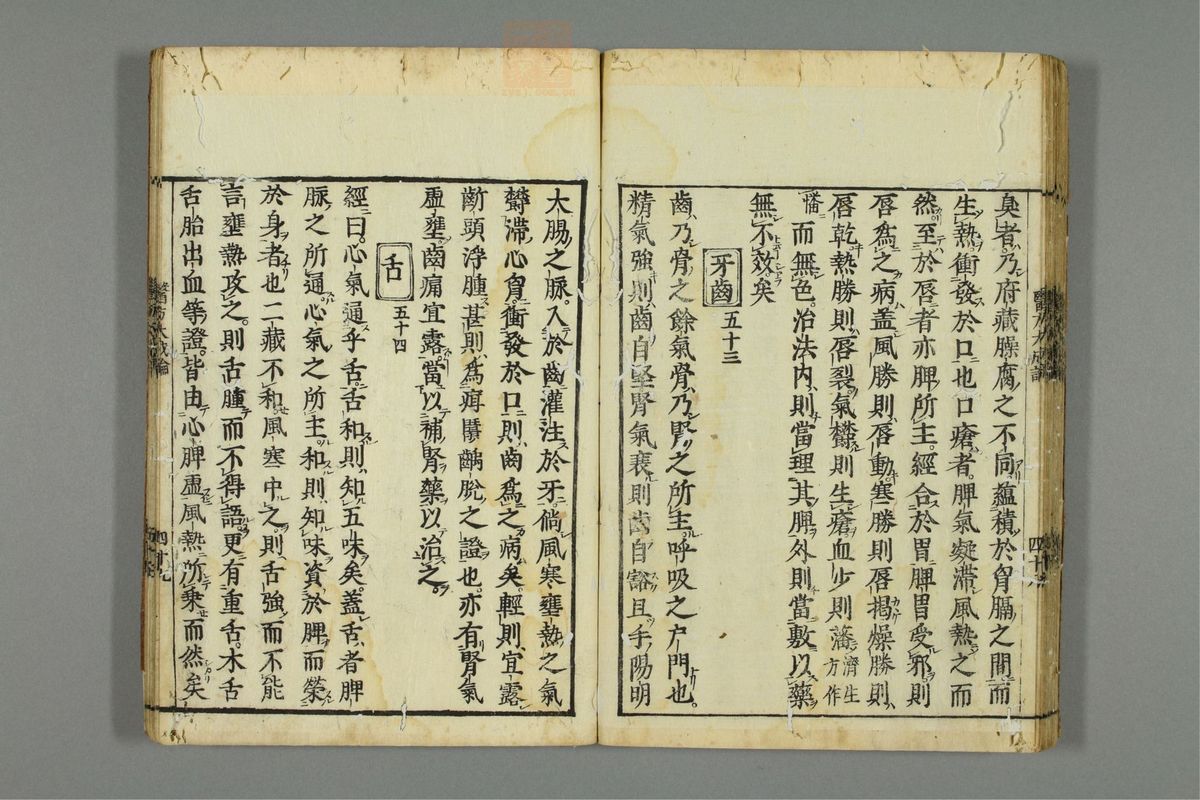 臭者乃府藏臊腐之不同蘊積於胷膈之間而
生熱衝發於口也口瘡者脾氣凝滯風熱之而
然至於唇者亦脾所主經合於胃脾胃受邪則
唇爲之病蓋風勝則唇動寒勝則唇揭燥勝則
唇乾熱勝則唇裂氣欝則生瘡血少則瀋濟生方作
而無色治法内則當理其脾外則當敷以藥
無不效矣
牙齒 五十三
齒乃骨之餘氣骨乃腎之所主呼吸之户門也
精氣強則齒自堅腎氣衰則齒自豁且手陽明
大腸之脉入於齒灌注於牙倘風寒壅熱之氣
欝滯心胷衝發於口則齒爲之病矣輕則宜露
齗頭浮腫甚則爲疳䘌齲脫之證也亦有腎氣
虛壅齒痛宜露當以補腎藥以治之
舌 五十四
經曰心氣通乎舌舌和則知五味矣蓋舌者脾
脉之所通心氣之所主和則知味資於脾而榮
於身者也二藏不和風寒中之則舌強而不能
言壅熱攻之則舌腫而不得語更有重舌木舌
舌胎出血等證皆由心脾虛風熱所乘而然矣
醫方大成論
四十九